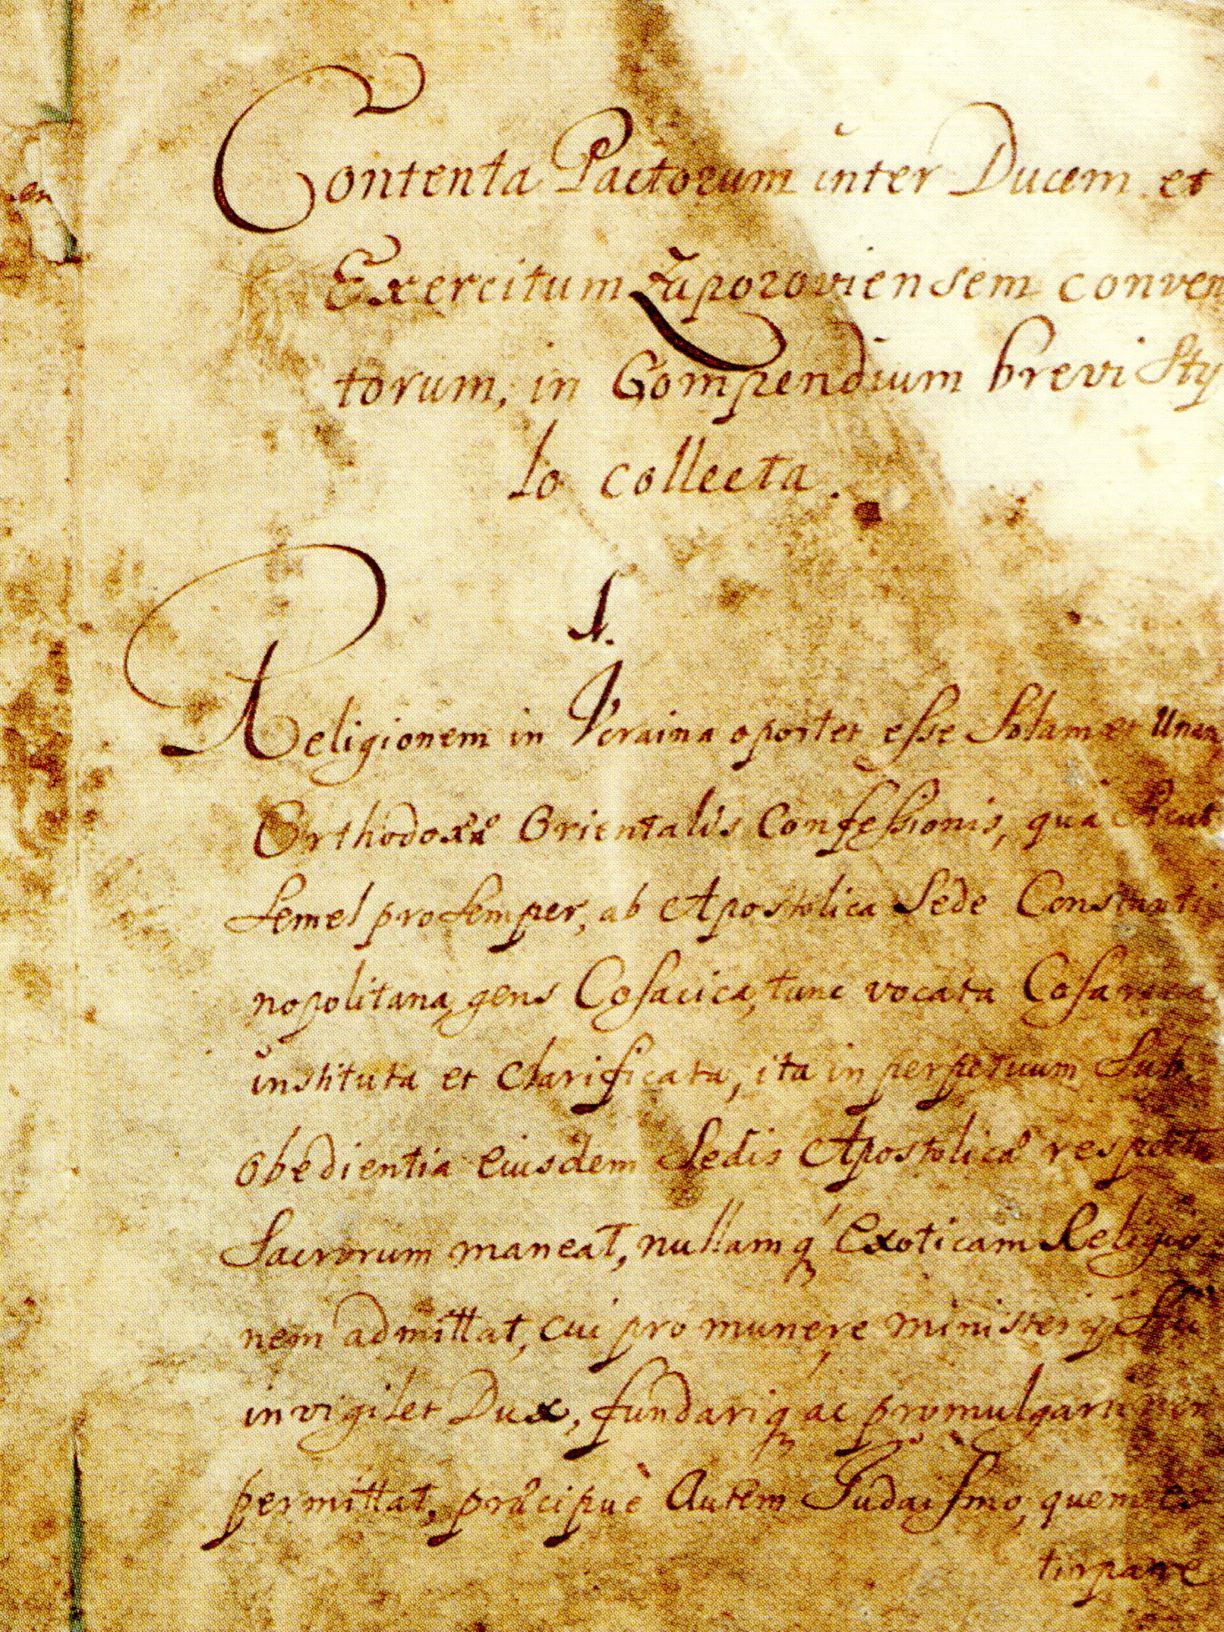 Contenta Pactorum inter Ducem et
Exercitum Zaporoviensem conven
torum, in Compendium brevi Sty
lo collecta.
1.
Religionem in Vcraina oportet esse Solam et Unam
Orthodoxæ Orientalis Confessionis, qua Sicut
Semel pro Semper, ab Apostolica Sede Constanti
nopolitana gens Cosacica, tunc vocata Cosarica
instituta et Clarificata, ita in perpetuum Sub
obedientia eiusdem Sedis Apostolicæ respectu
Sacrorum maneat, nullamq' Exoticam Religio
nem admittat, cui pro munere ministerij Sui
invigilet Dux, fundariq ac promulgari non
permittat, præcipuè Autem Judaismo, quem ex
tirpare